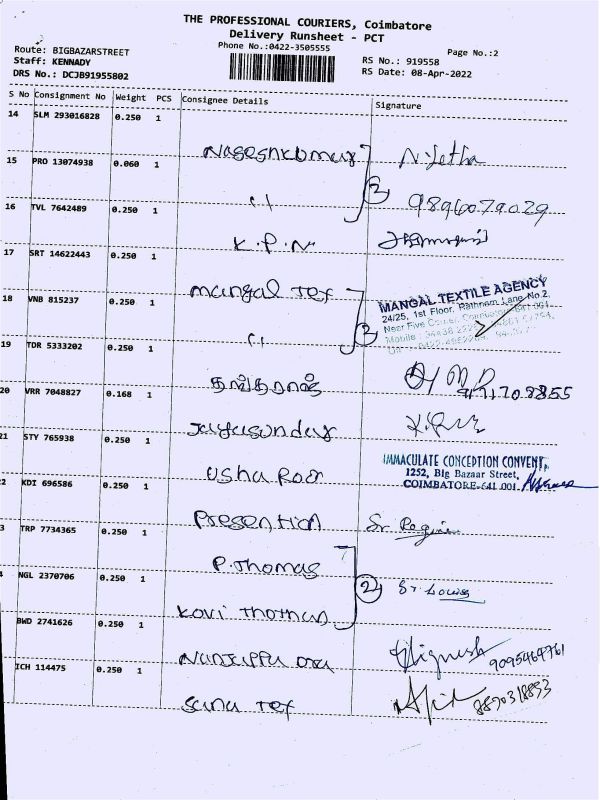 THE PROFESSIONAL COURIERS, Coimbatore
Delivery Runsheet - PCT
Phone No.:0422-3505555
Page No.:2
Route: BIGBAZARSTREET
Staff: KENNADY
DRS No.: DCJB91955802
RS No.: 919558
RS Date: 08-Apr-2022
S No Consignment No Weight PCS Consignee Details Signature
14 SLM 293016828 0.250 1
Nageshkumar N. Jetha
15 PRO 13074938 0.060 1
2
16 TVL 7642489 0.250 1
K.P.N
17 SRT 14622443 0.250 1
mangal Tex MANGAL TEXTILE AGENCY
24/25, 1st Floor, Rathnam Lane No.2,
18 VNB 815237 0.250 1
2
19 TDR 5333202 0.250 1
தங்கராஜ்
20 VRR 7048827 0.168 1
Jayasundar
21 STY 765938 0.250 1
IMMACULATE CONCEPTION CONVENT,
Usha Rodr 1252, Big Bazaar Street,
COIMBATORE-641 001.
2 KDI 696586 0.250 1
Presention Sr. Regina
3 TRP 7734365 0.250 1
P. Thomas
4 NGL 2370706 0.250 1
2 Sr Louis
Kovi Thomas
BWD 2741626 0.250 1
Nanjappa Jignesh 9095469761
ICH 114475 0.250 1
Sana Tex 8870318893